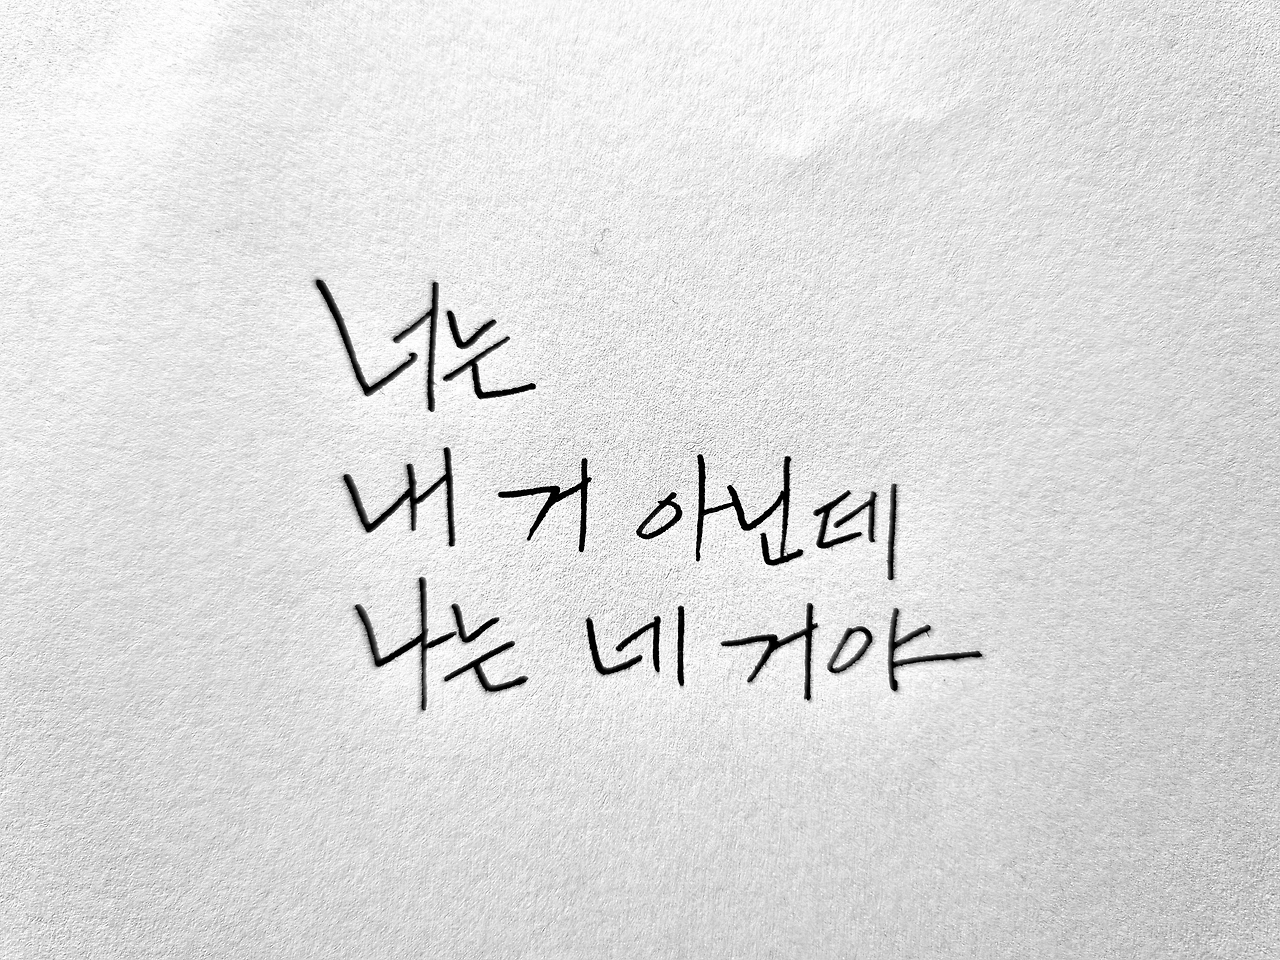 너는
내 거 아닌데
나는 네 거야